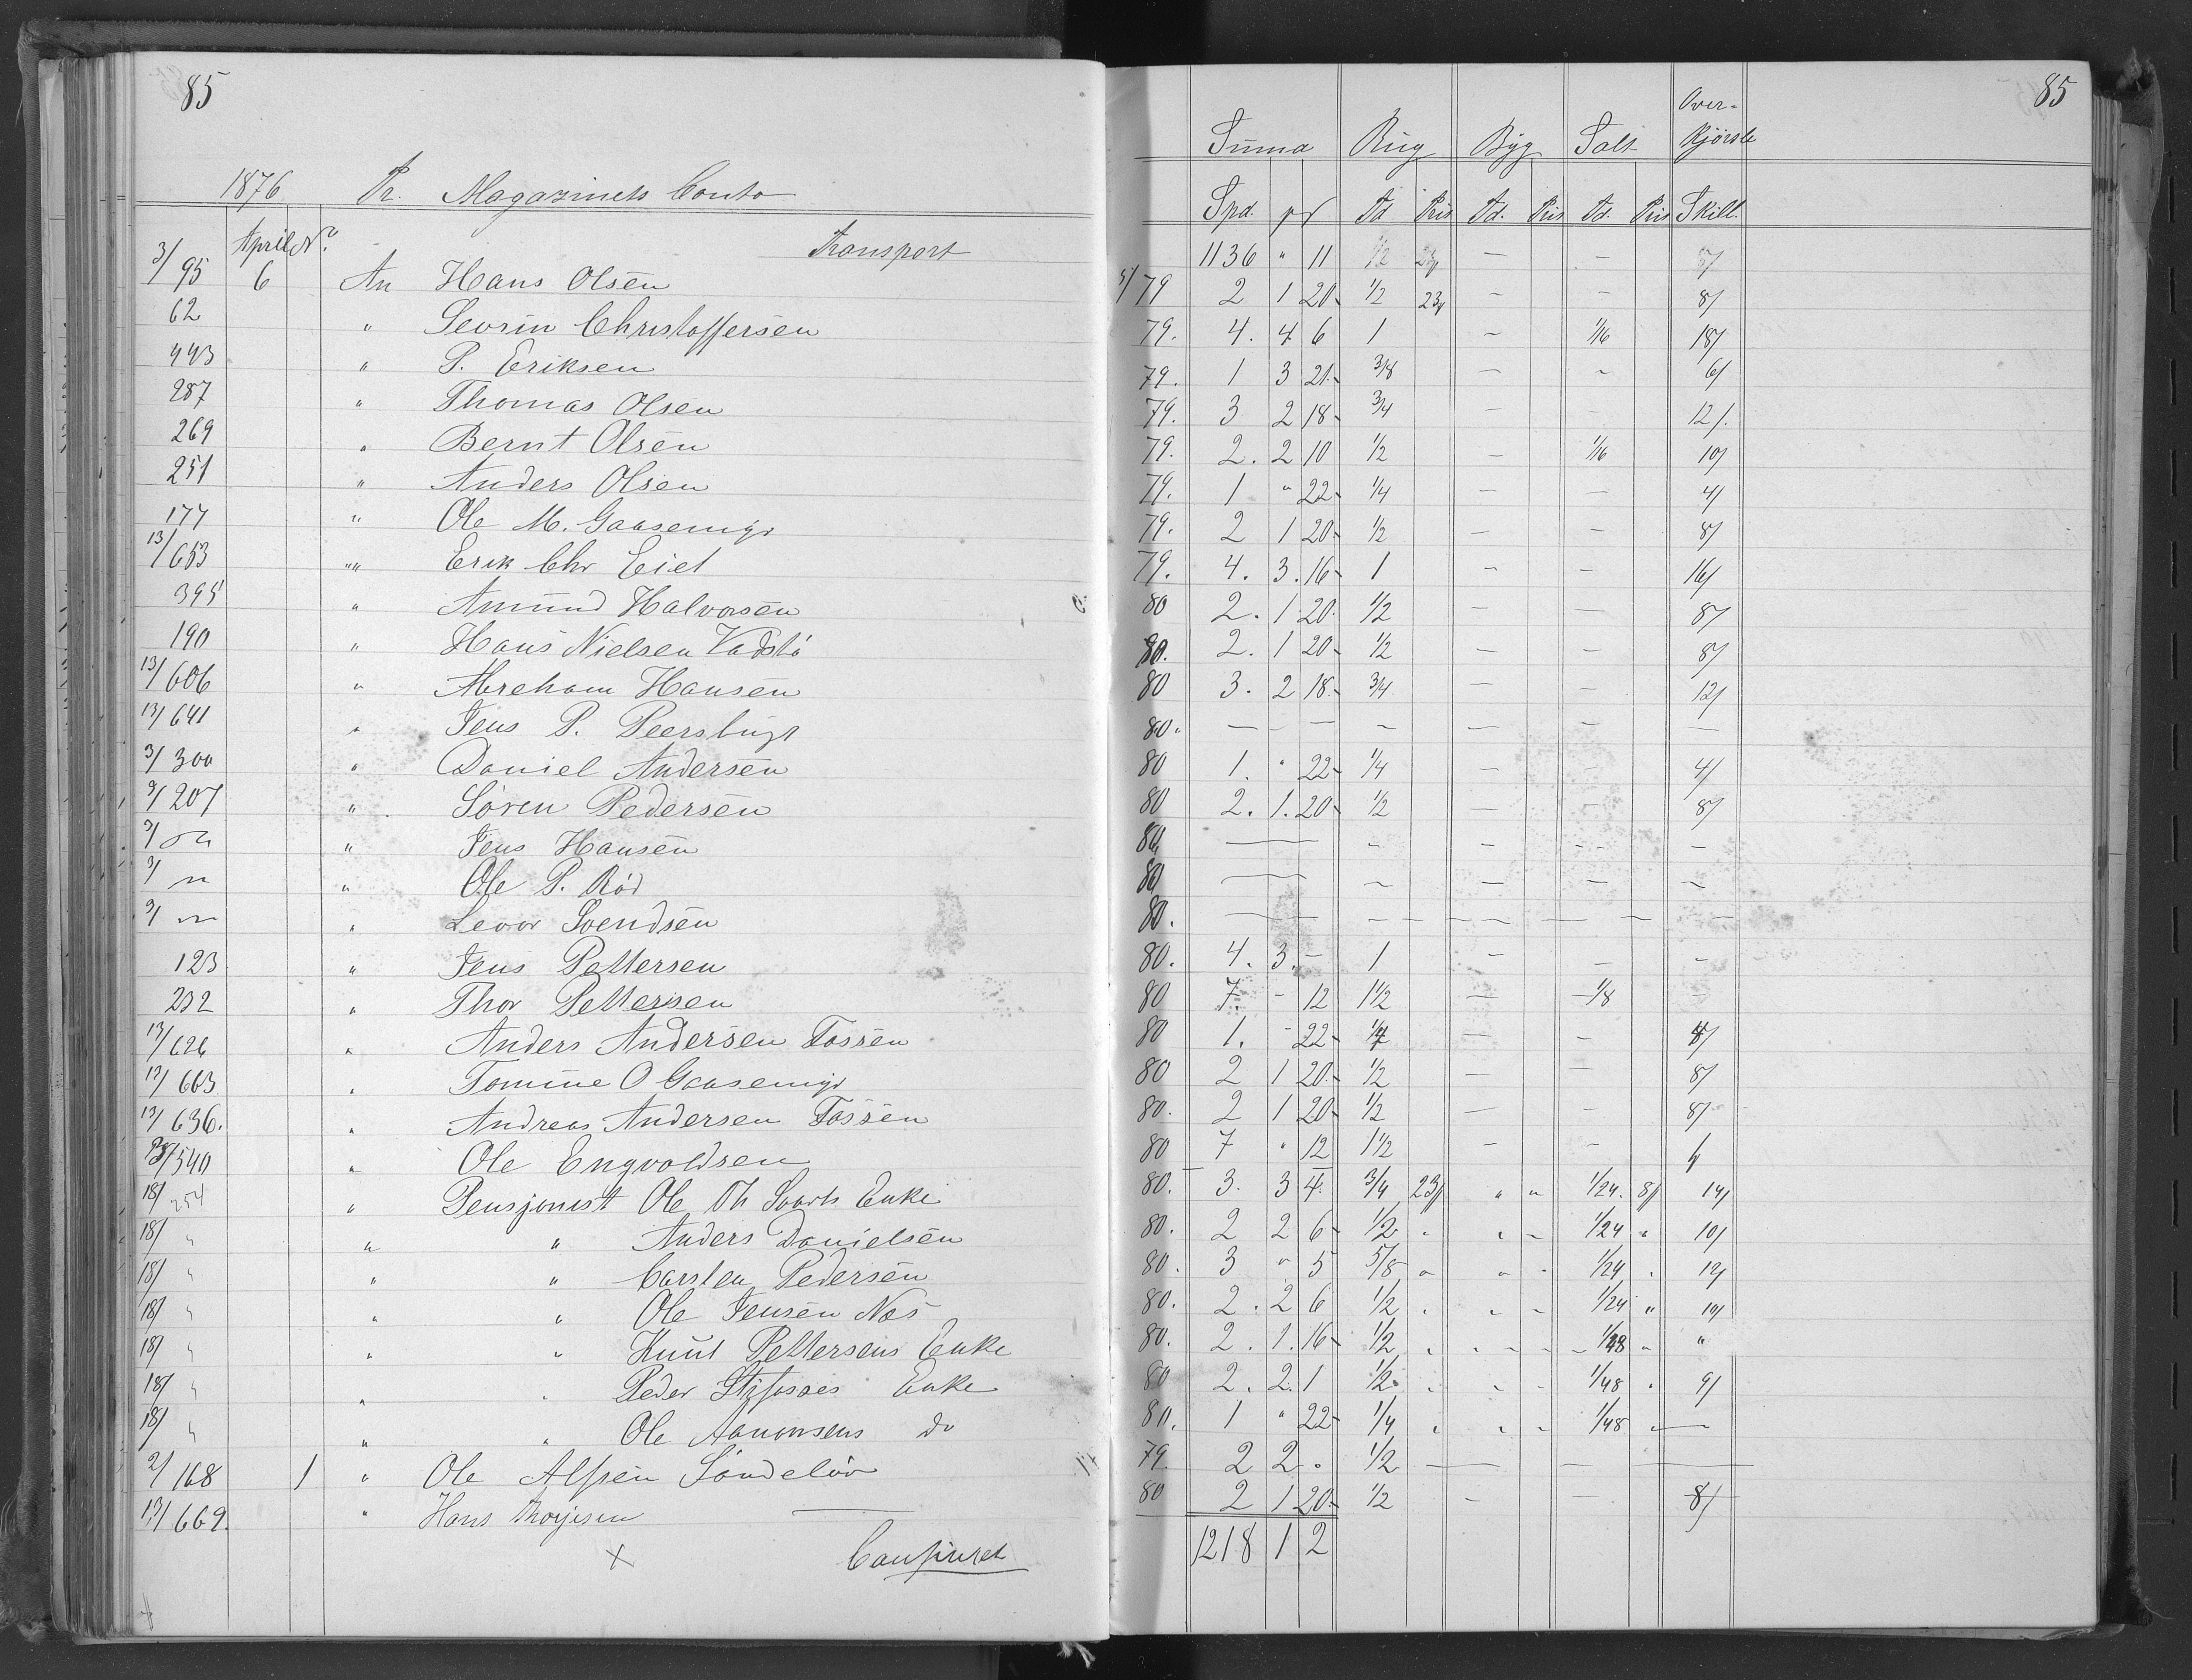 85
1876 Pr. Magazinets Conto
April No. Transport
3/95 6 An Hans Olsen
62 " Sevrin Christoffersen
443 " P. Eriksen
287 " Thomas Olsen
269 " Bernt Olsen
251 " Anders Olsen
177 " Ole M. Gaasemyr
13/653 "" Erik Chr Eiet
395 " Amund Halvorsen
190 " Hans Nielsen
13/606 " Abreham Hansen
13/641 " Jens P. Peersbugt
3/300 " Daniel Andersen
9/207 " Søren Pedersen
" Jens Hansen
" Ole P. Rød
" Levor Svendsen
123 " Jens Pettersen
232 " Thor Pettersen
13/626 " Anders Andersen Fossen
13/663 " Tomine O Gaasemyr
13/636. " Andreas Andersen Fossen
/540 " Ole Engvoldsen
18/254 " Pensjonist Ole Th Enke
18/ " " " Anders Danielsen
18/ " " " Carsten Pedersen
18/ " " " Ole Jensen Næs
18/ " " " Knut Pettersens Enke
18/ " " " Peder Enke
18/ " " " Ole Aanonsens do
2/168 1 " Ole Alfsen Søndeløv
13/669. " Hans Thorjusen
+ Tranfineret
85
Summa Rug Byg Salt Over-
Kjørsle
Spd. Td Pris Td. Pris Td. Pris Skill.
1136 " 11 1/2 23/ — — 5/
5/79 2 1 20 1/2 23/ — — 8/
79. 4. 4 6 1 — 1/16 18/
79. 1 3 21 3/8 — — 6/
79. 3 2 18 3/4 — — 12/.
79. 2. 2 10 1/2 — 1/16 10/
79. 1 " 22 1/4 — — 4/
79. 2 1 20 1/2 — — 8/
79. 4. 3. 16 1 — — 16/
80 2. 1 20 1/2 — — 8/
80. 2. 1 20 1/2 — — 8/
80 3. 2 18 3/4 — — 12/
80. — — — — — — —
80 1. " 22 1/4 — — 4/
80 2. 1. 20 1/2 — — 8/
80 — — — — —
80 — — — — —
80. — — — — — — — —
80. 4. 3. — 1 — — —
80 7. - 12 1 1/2 — 1/8 —
80 1. - 22 1/4 — — 4/
80 2 1 20 1/2 — — 8/
80. 2 1 20 1/2 — — 8/
80 7 " 12 1 1/2 — —
80. 3. 3 4. 3/4 23/ " " 1/24. 8/ 14/
80. 2 2 6 1/2 " " " 1/24 " 10/
80. 3 " 5 5/8 " " " 1/24 " 12/
80. 2. 2 6 1/2 " " " 1/24 " 10/
80. 2. 1. 16 1/2 " " " 1/48 " "
80 2. 2. 1 1/2 " " " 1/48 " 9/
80. 1 " 22 1/4 " " " 1/48 " —
79. 2 2 " 1/2 — — —
80 2 1 20 1/2 — — 8/
1218 1 2